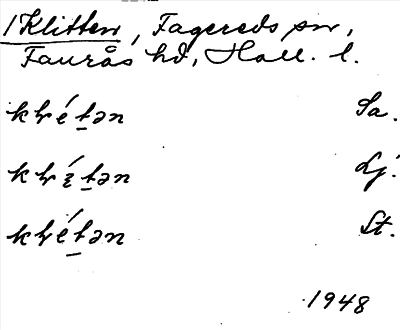 /Klitten, Fagereds sn,
Faurås hd, Hall. l.
kƚét̠ən Sa.
kƚít̠ən Lj.
kƚét̠ən St.
1948